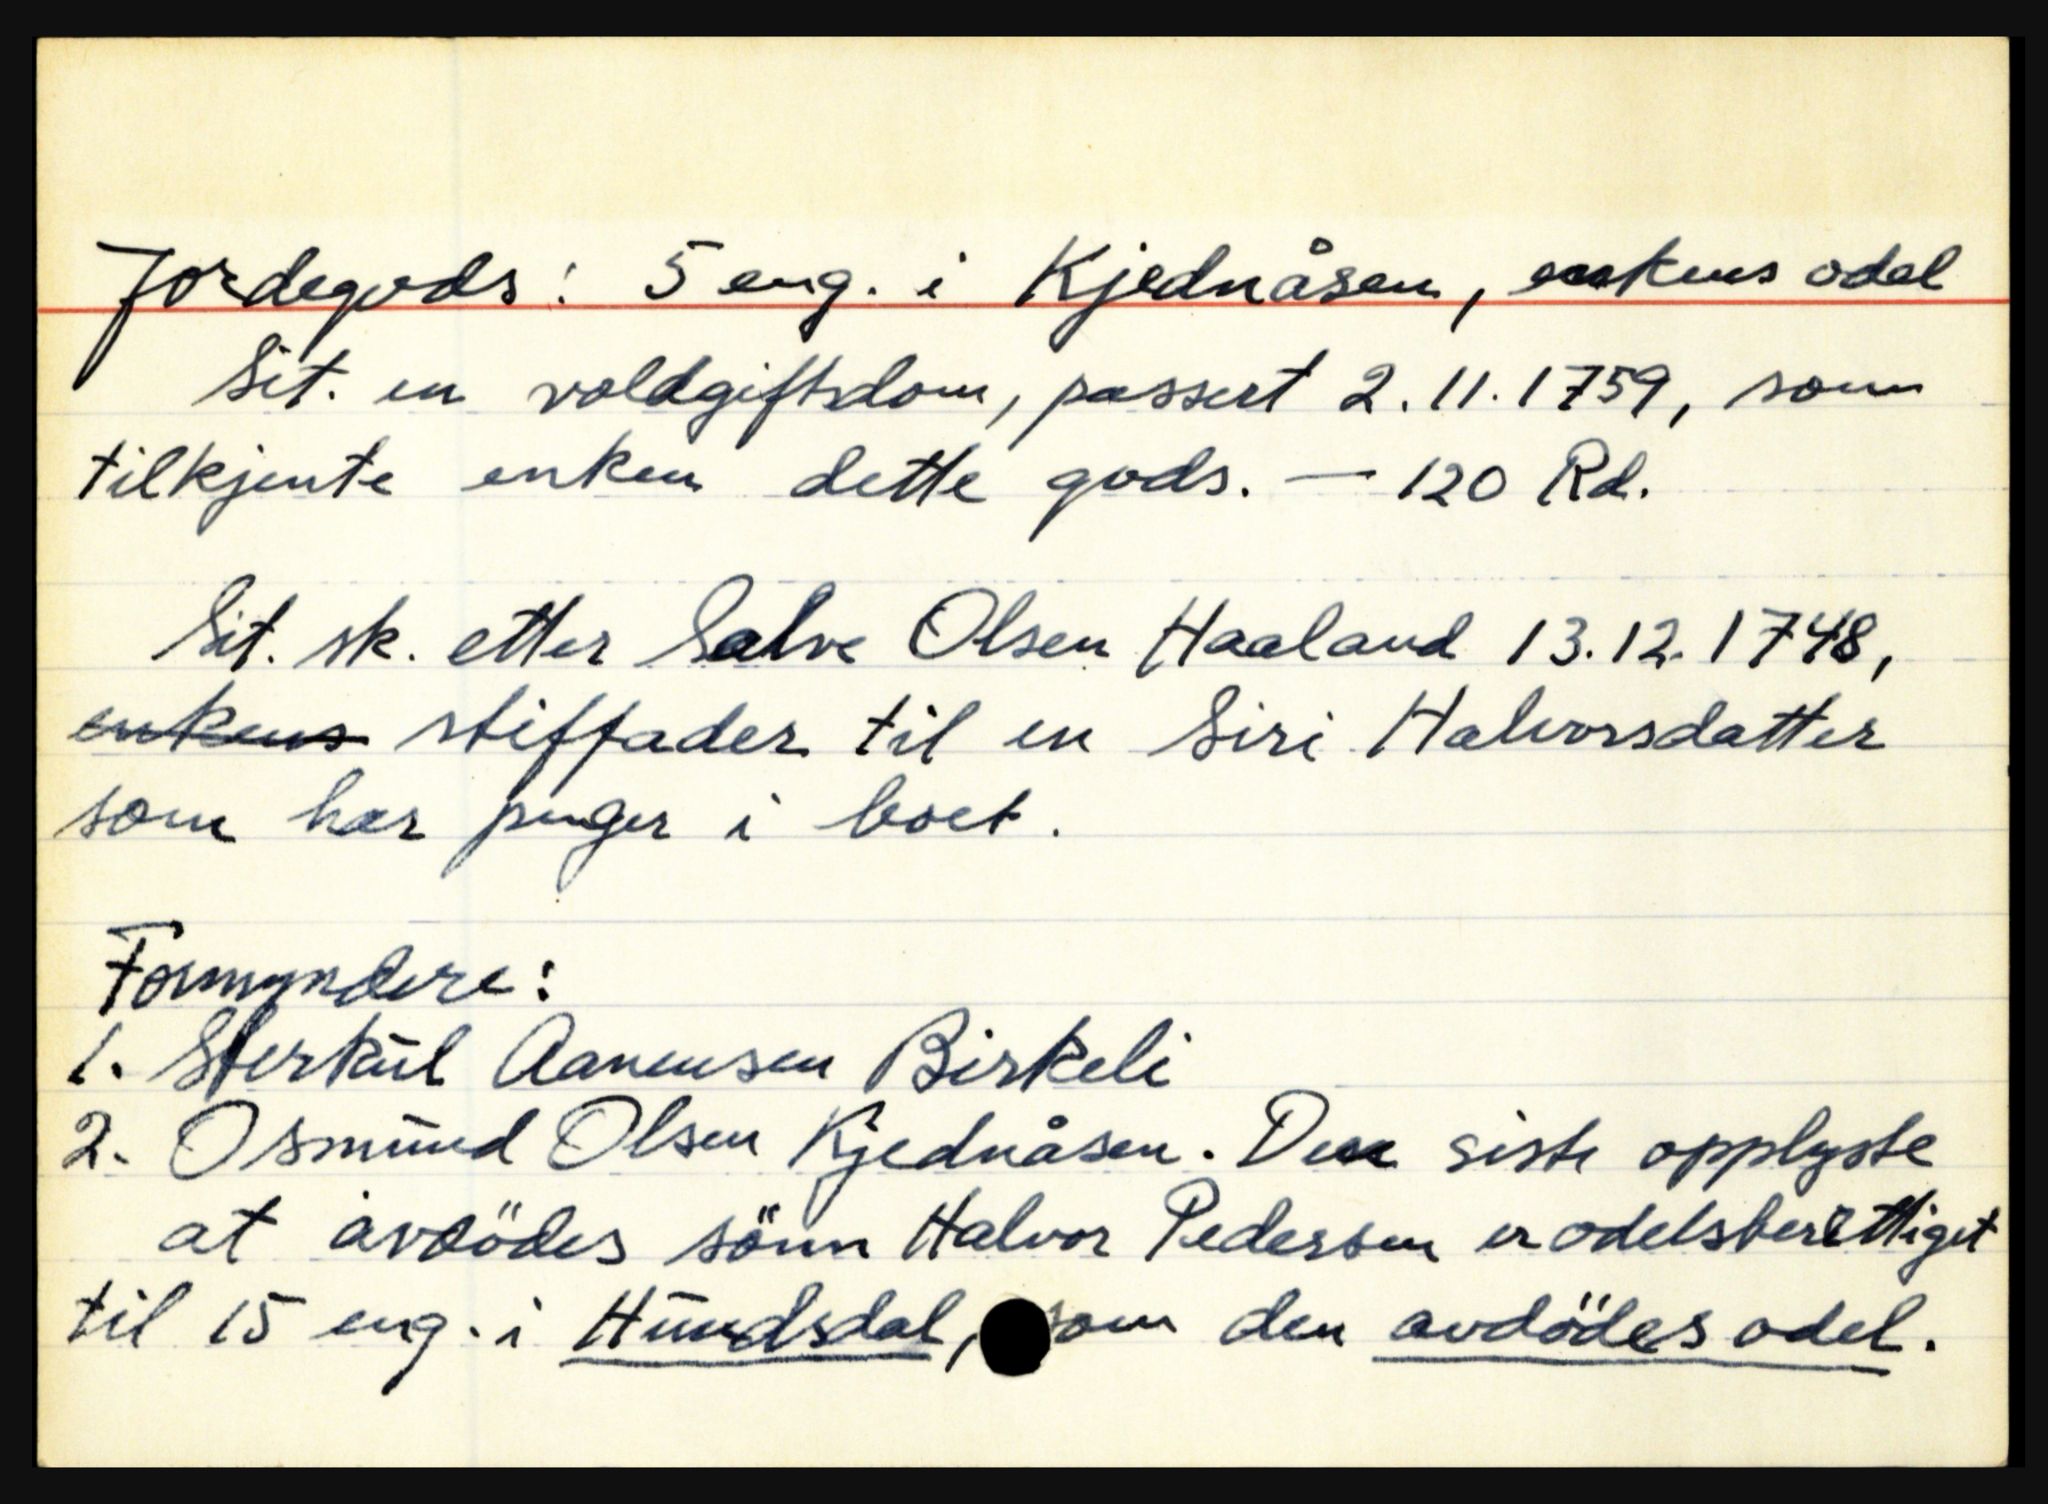 Jordegods: 5 eng. i Kjednåsen, enkens odel
Sit. en voldgiftsdom, passert 2.11.1759, som
tilkjente enken dette gods. — 120 Rd.
Sit. sk. etter Salve Olsen Haaland 13.12.1748,
enkens stiffader til en Siri Halvorsdatter
som har penger i boet.
Formyndere:
1. Sterkül Aanensen Birkeli
2. Osmund Olsen Kjednåsen. Den siste opplyste
at avdödes sönn Halvor Pedersen er odelsberettiget
til 15 eng. i Hundsdal, som den avdödes odel.